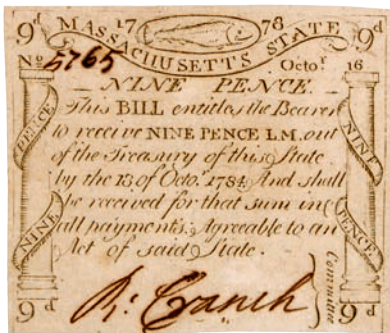 17 78
9d MASSACHUSETTS STATE 9d
No 5765 Octor 16
NINE PENCE.
This BILL entitles the Bearer
to receive NINE PENCE L.M. out
of the Treasury of this State
by the 18 of Octo.r 1784 And shall
be received for that sum in
all payments. Agreeable to an
Act of said State.
PENCE
NINE
NINE
PENCE
R: Cranch
Committee
9d 9d